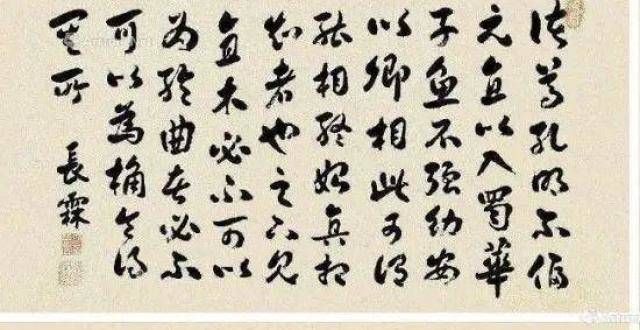 諸葛孔明不偪
元直以入蜀華
子魚不強幼安
以卿相此可謂
能相終始真相
知者也足下見
直木必不可以
為輪曲者必不
可以為桷令得
其所
長霖